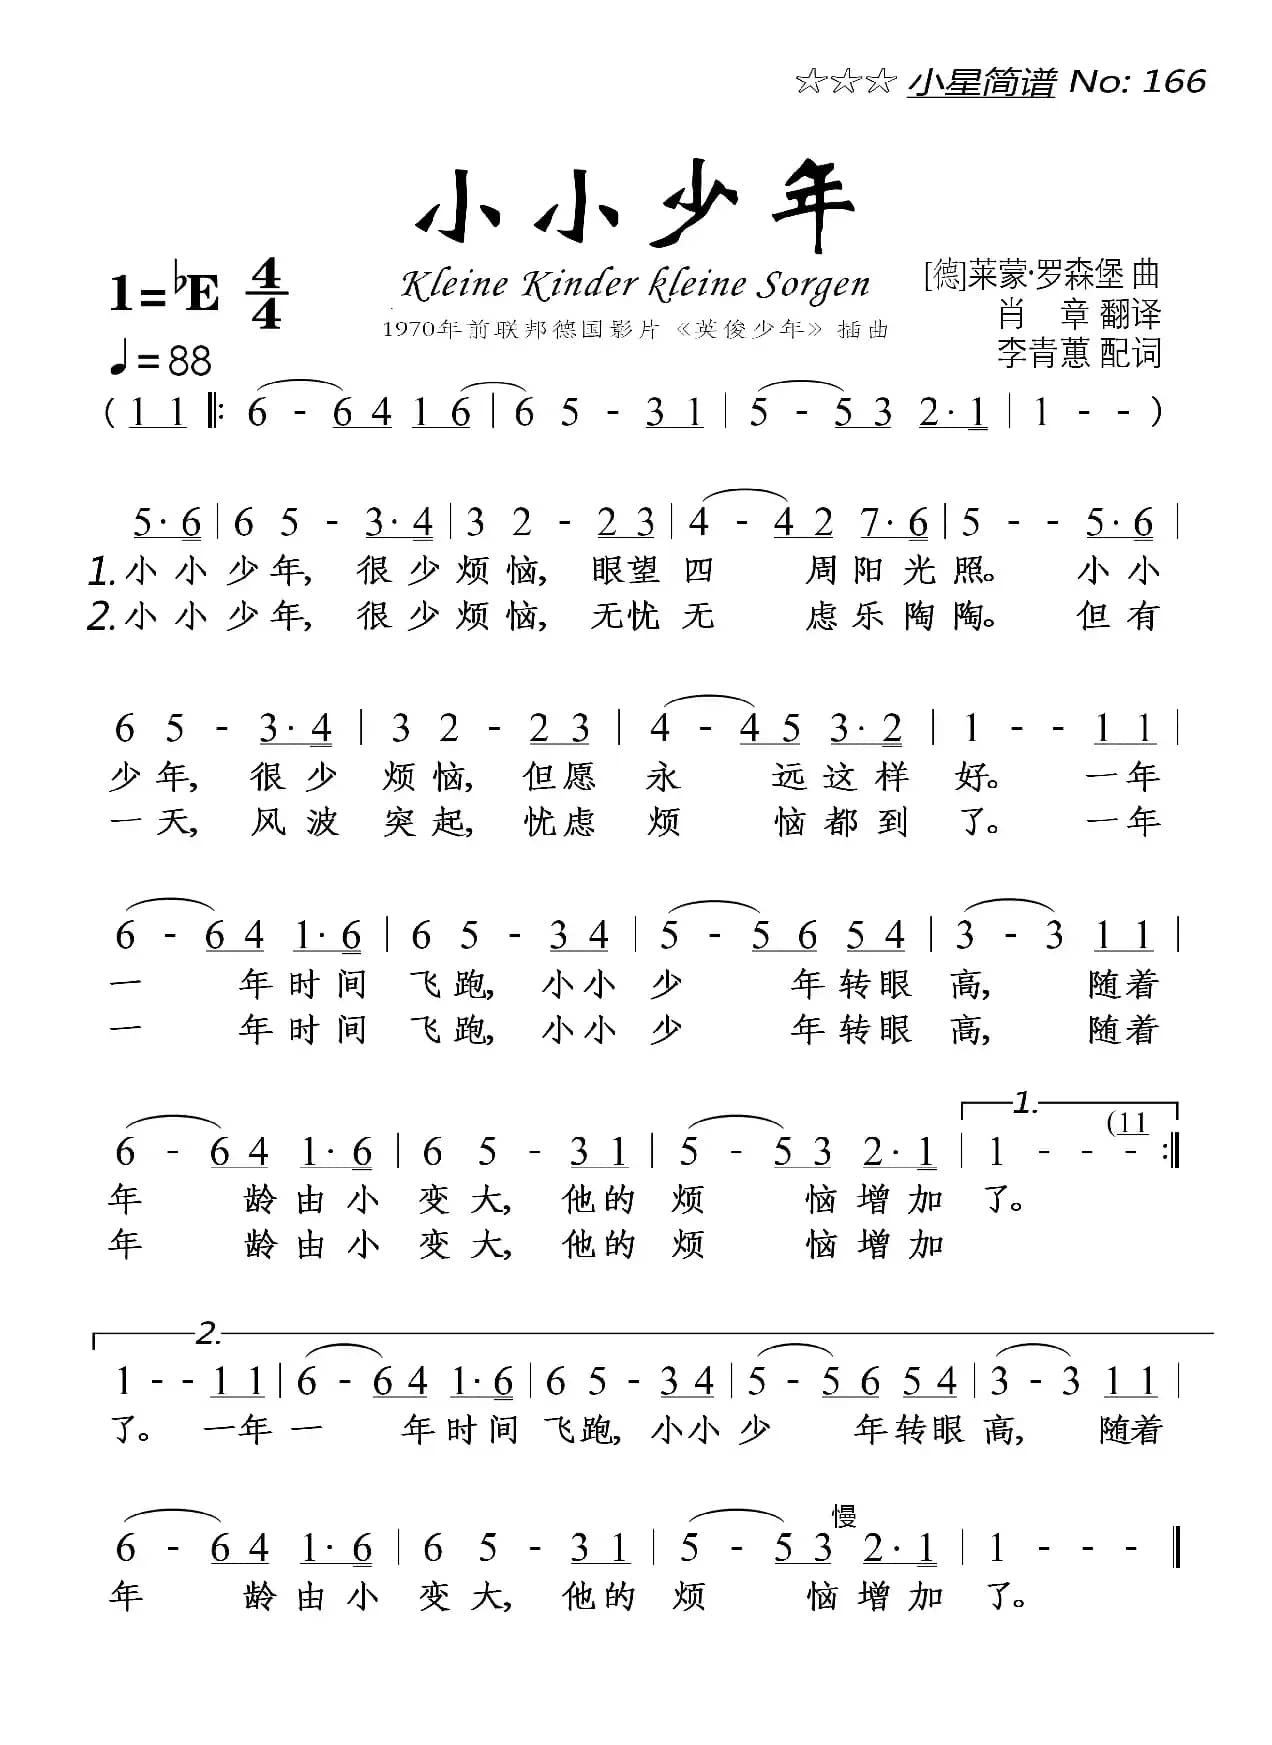 ☆☆☆ 小星简谱 No: 166
小小少年
Kleine Kinder kleine Sorgen
1970年前联邦德国影片《英俊少年》插曲
1=♭E 4/4
♩=88
[德]莱蒙·罗森堡 曲
肖 章 翻译
李青蕙 配词
( 1 1 ‖: 6 - 6 4 1 6 | 6 5 - 3 1 | 5 - 5 3 2· 1 | 1 - - )
5· 6 | 6 5 - 3· 4 | 3 2 - 2 3 | 4 - 4 2 7· 6 | 5 - - 5· 6 |
1. 小小少年, 很少烦恼, 眼望四 周阳光照。 小小
2. 小小少年, 很少烦恼, 无忧无 虑乐陶陶。 但有
6 5 - 3· 4 | 3 2 - 2 3 | 4 - 4 5 3· 2 | 1 - - 1 1 |
少年, 很少烦恼, 但愿永 远这样好。 一年
一天, 风波突起, 忧虑烦 恼都到了。 一年
6 - 6 4 1· 6 | 6 5 - 3 4 | 5 - 5 6 5 4 | 3 - 3 1 1 |
一 年时间飞跑, 小小少 年转眼高, 随着
一 年时间飞跑, 小小少 年转眼高, 随着
1.
(11
6 - 6 4 1· 6 | 6 5 - 3 1 | 5 - 5 3 2· 1 | 1 - - - :‖
年 龄由小变大, 他的烦 恼增加了。
年 龄由小变大, 他的烦 恼增加
2.
1 - - 1 1 | 6 - 6 4 1· 6 | 6 5 - 3 4 | 5 - 5 6 5 4 | 3 - 3 1 1 |
了。 一年一 年时间飞跑, 小小少 年转眼高, 随着
慢
6 - 6 4 1· 6 | 6 5 - 3 1 | 5 - 5 3 2· 1 | 1 - - - ‖
年 龄由小变大, 他的烦 恼增加了。